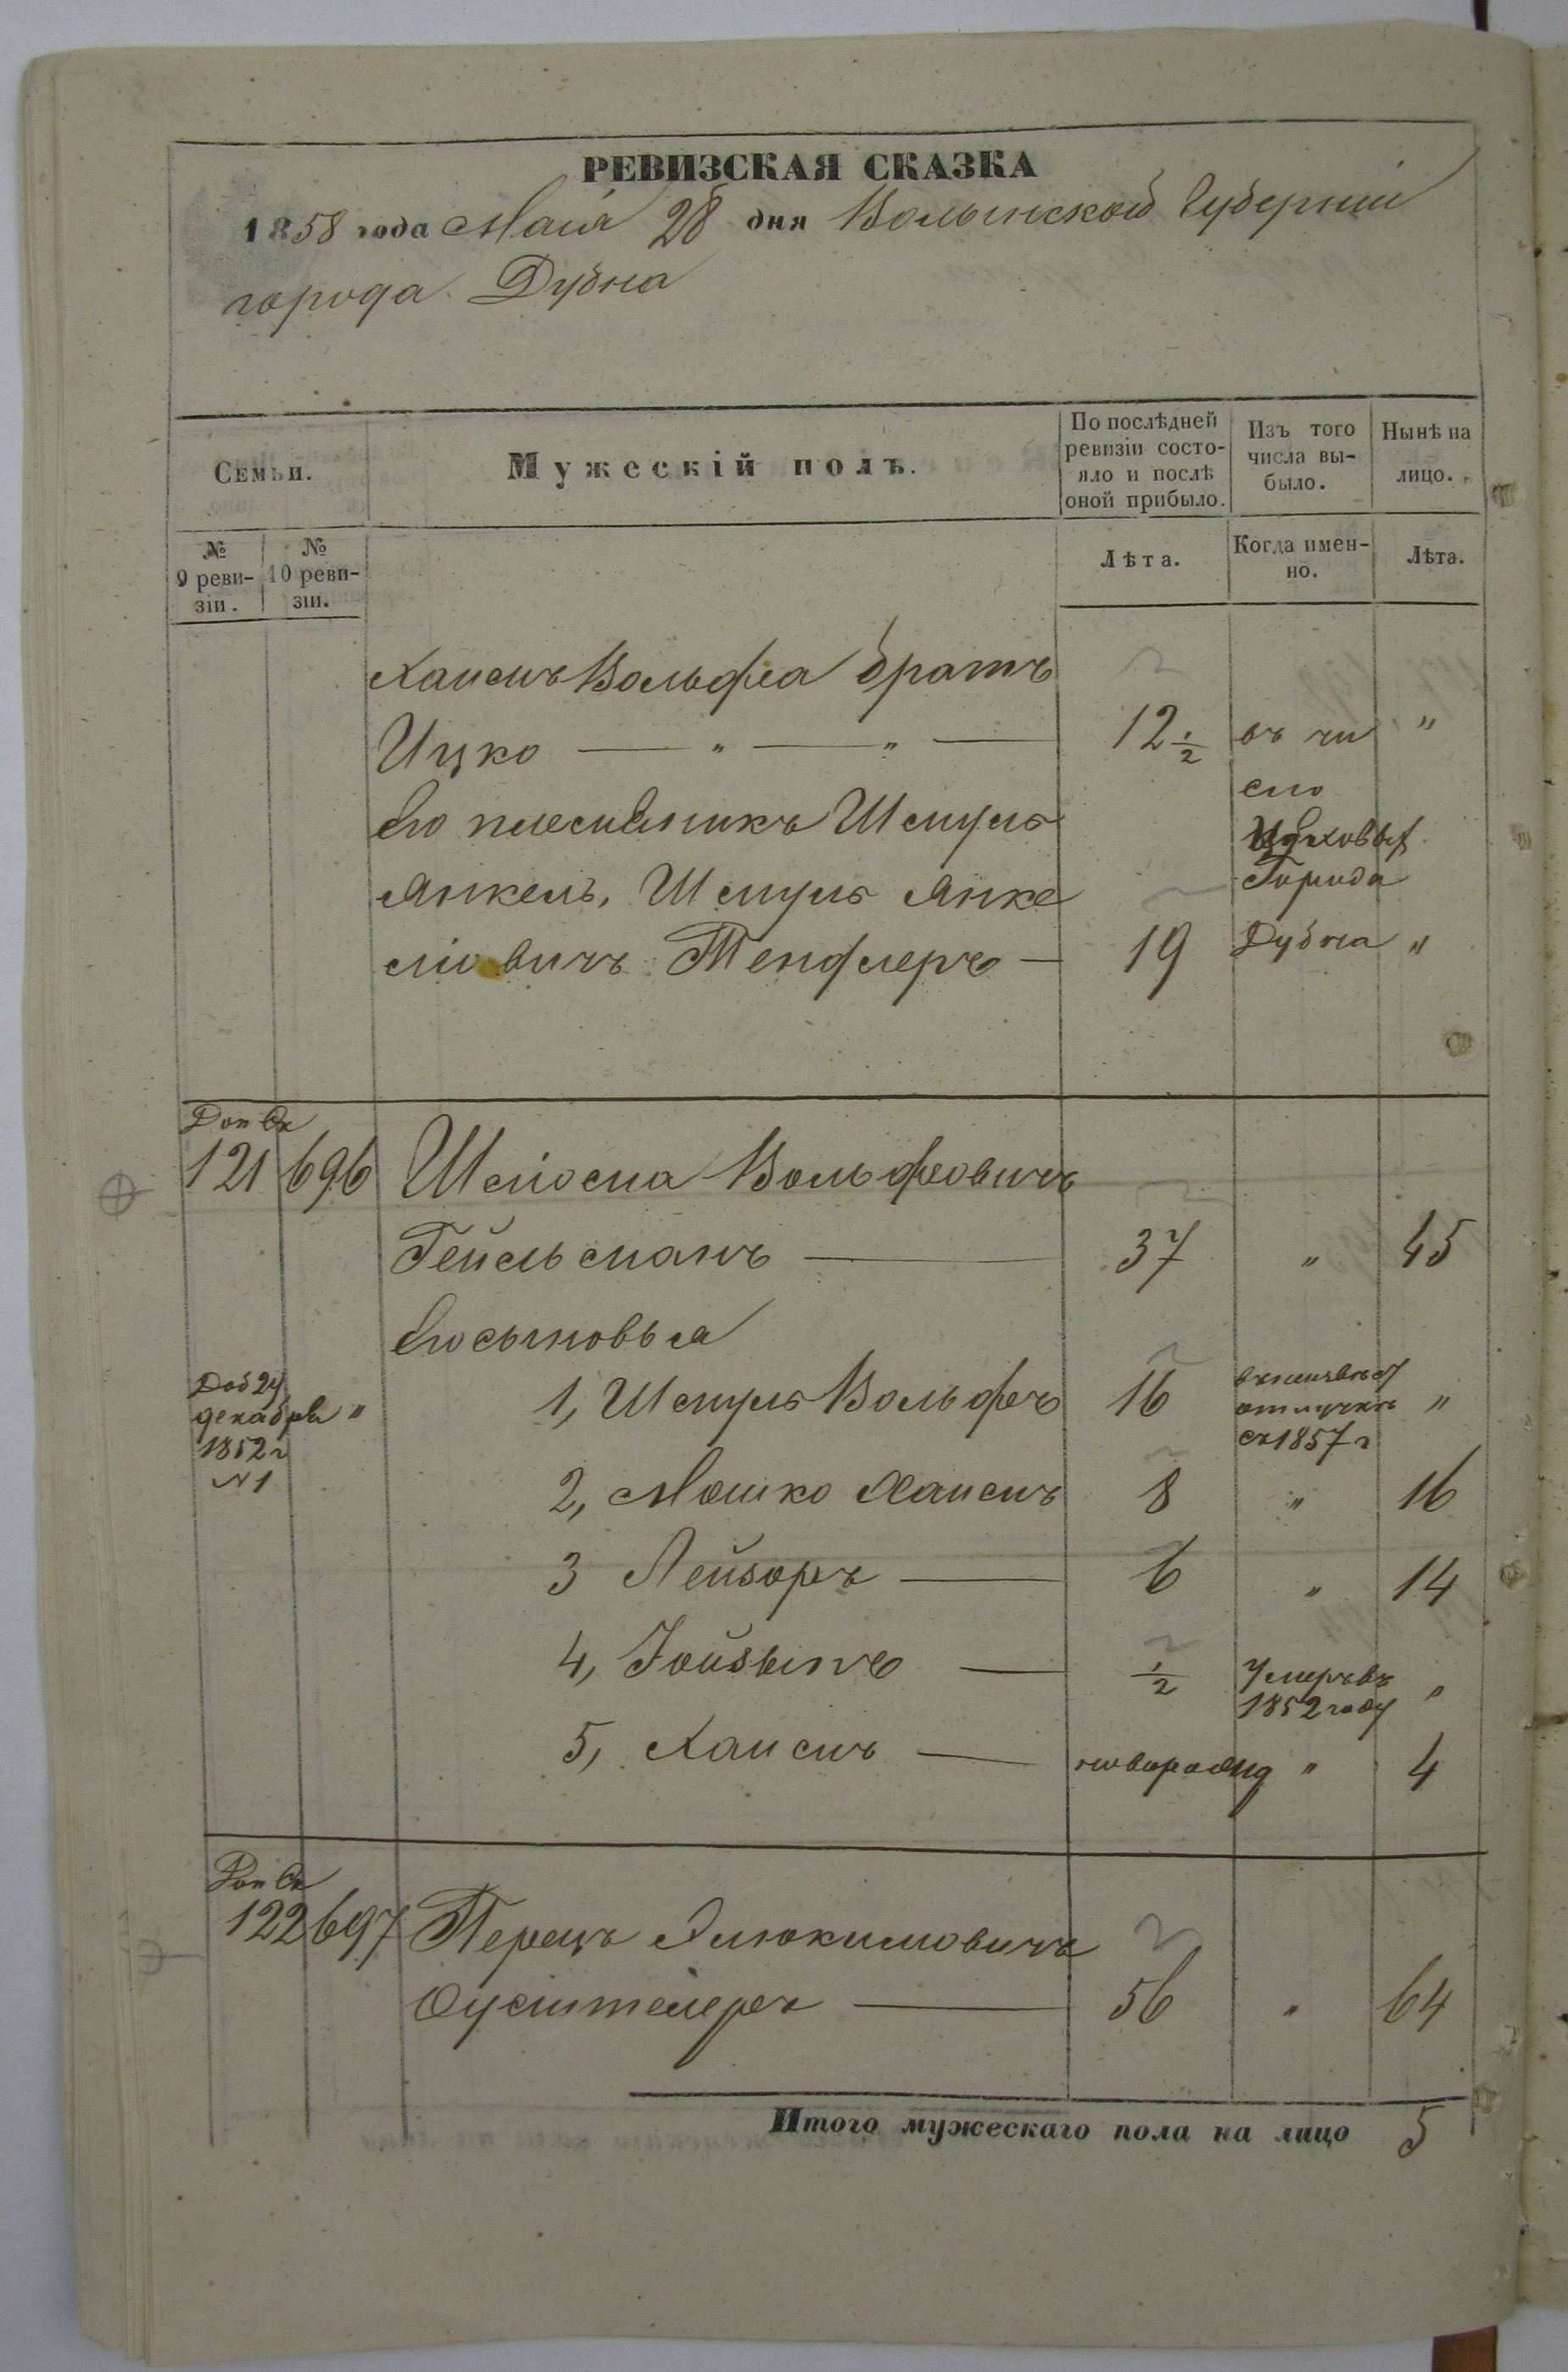 РЕВИЗСКАЯ СКАЗКА
1858 года Маія 28 дня Волынской Губерніи
города Дубна
Семьи.
Мужескій полъ.
По послѣдней ревизіи состо-
яло и послѣ
оной прибыло.
Изъ того
числа вы-
было.
Нынѣ на
лицо.
№
9 реви-
зіи.
№
10 реви-
зіи.
Лѣта.
Когда имен-
но.
Лѣта.
Хаимъ Вольфа братъ
Ицко — " — " — 12 1/2 въ чи "
сло
Его племяникъ Шмуль
Янкель, Шмуль Янке
Города
лiовичъ Тенцлеръ — 19 Дубна "
Доп Ск
121 696 Шліома Вольфовичъ
Гейсъманъ — 37 " 45
Его сыновья
Доб 24
декабря "
1852 г
N 1
1, Шмуль Вольфъ 16 "
отлучкѣ
съ 1857 г
2, Мошко Хаимъ 8 " 16
3 Лейзоръ — 6 " 14
4, Іойзыпъ — 1/2 Умеръ въ "
1852 году
5, Хаимъ — новорожд " 4
Доп Ск
122 697 Перецъ Элюкимовичъ
— 56 " 64
Итого мужескаго пола на лицо 5